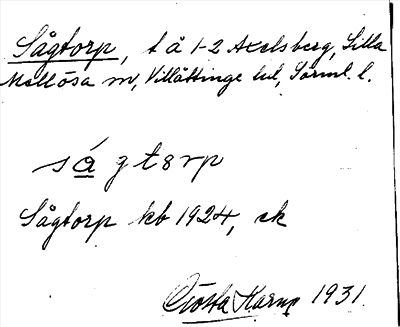 Sågtorp, t å 1-2 Axelsberg, Lilla
Mellösa sn, Villåttinge hd, Sörml. l.
sågtorp
Sågtorp kb 1924, ek
Gösta Karup 1931